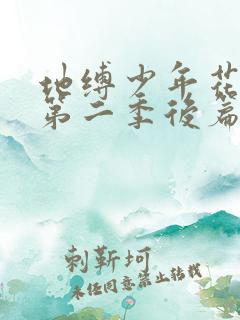 地缚少年花
第二季后篇
刺靳坷
未经同意禁止转载